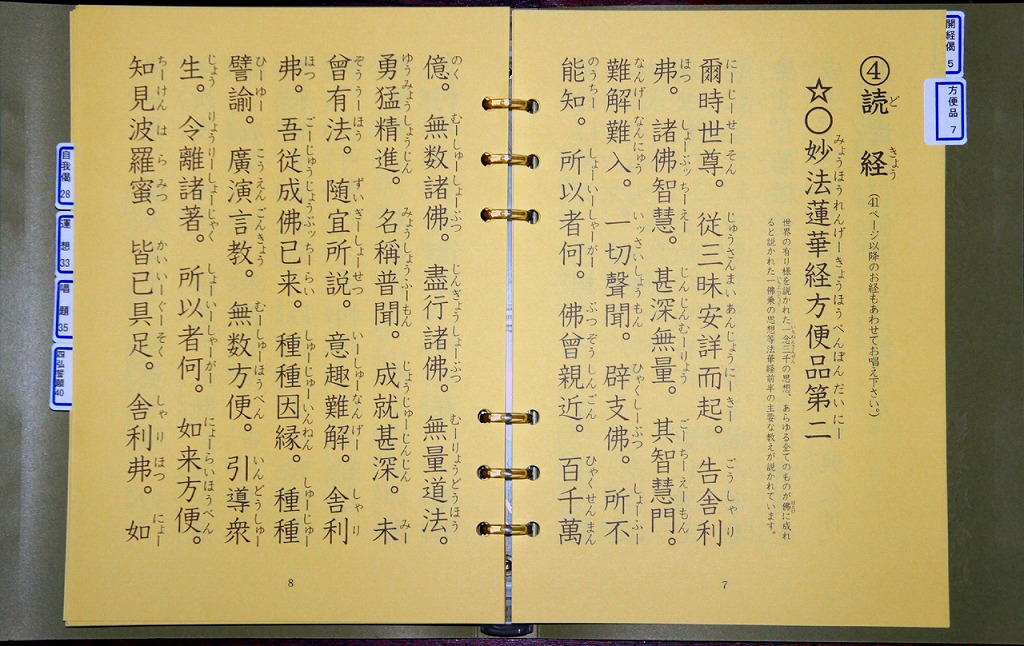 ④読経（41ページ以降のお経もあわせてお唱え下さい。）
☆〇妙法蓮華経方便品第二
世界の有り様を説かれた一念三千の思想、あらゆる全てのものが佛に成れ
ると説かれた一佛乗の思想等法華経前半の主要な教えが説かれています。
爾時世尊。従三昧安詳而起。告舎利
弗。諸佛智慧。甚深無量。其智慧門。
難解難入。一切聲聞。辟支佛。所不
能知。所以者何。佛曾親近。百千萬
7
億。無数諸佛。盡行諸佛。無量道法。
勇猛精進。名稱普聞。成就甚深。未
曾有法。随宜所説。意趣難解。舎利
弗。吾従成佛已来。種種因縁。種種
譬諭。廣演言教。無数方便。引導衆
生。令離諸著。所以者何。如来方便。
知見波羅蜜。皆已具足。舎利弗。如
8
開経偈 5
方便品 7
自我偈 28
運想 33
唱題 35
四弘誓願 40